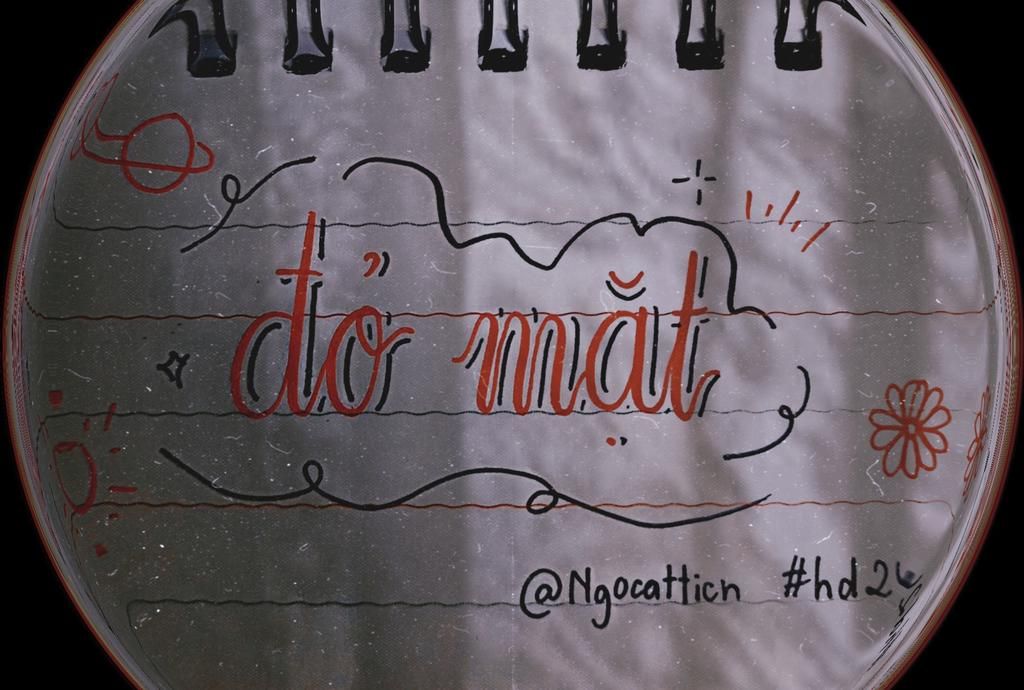 đỏ mặt
@Ngocatticn #hd